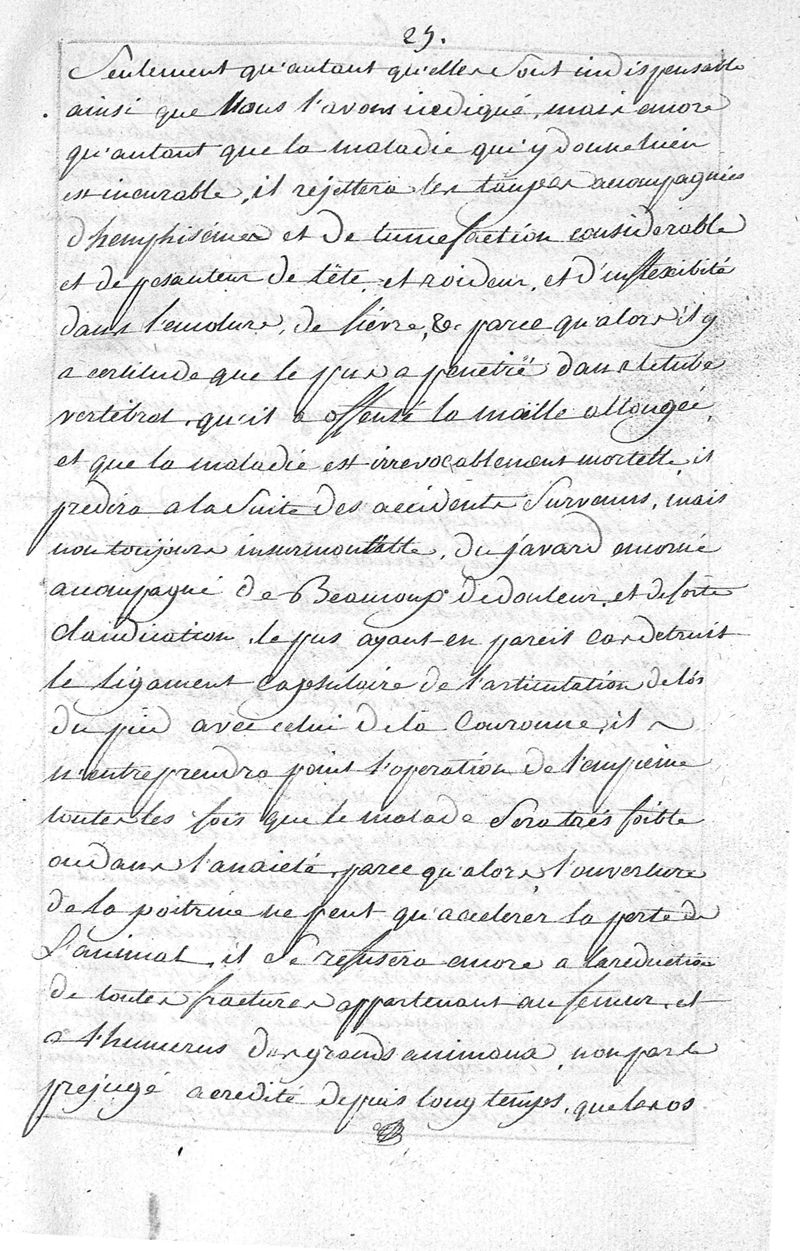 25.
Seulement qu'autant qu'elles sont indispensable
ainsi que Nous l'avons indiqué, mais encore
qu'autant que la maladie qui y donne lieu
est incurable, il rejettera les taupes accompagnées
d'hemphisémes et de tumefaction considerable
et de pesanteur de tëte et roideur, et d'inflexibité
dans l'encolure, de fiévre, &c parce qu'alors il y
a certitude que le pus a penetré dans le tube
vertébral, qu'il a offensé la moëlle allongée,
et que la maladie est irrevocablement mortelle, il
predira a la Suite des accidents Survenus, mais
non toujours insurmontable, du javard encorné
accompagné de Beaucoup de douleur, et de forte
claudication, le pus ayant en pareil cas detruit
le Ligament capsulaire de l'articulation de l'os
du pied avec celui de la Couronne, il
n'entreprendra point l'operation de l'empieme
toutes les fois que le malade Sera trés foible
ou dans l'anxieté, parce qu'alors l'ouverture
de la poitrine ne peut qu'accelérer la perte de
L'animal, il se refusera encore a la reduction
de toutes fractures appartenant au femur, et
a l'humerus des grands animaux, non par le
prejugé acredité depuis long temps, que les os